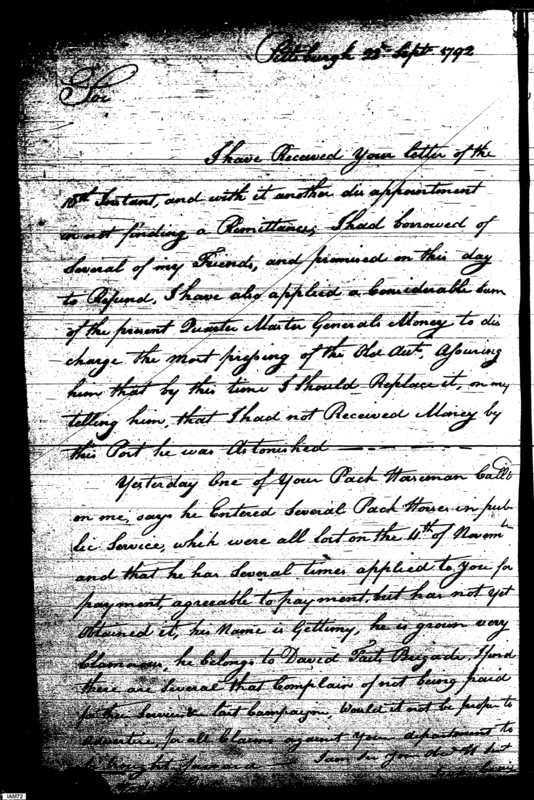 Pittsburgh 22d Sept 1792
Sir
I have Received your letter of the
Instant, and with it another dis appointment
in not finding a Remittance, I had borrowed of
Several of my Friends, and promised on this day
to Refund, I have also applied a Considerable Sum
of the present Quarter Master Generals Money to dis
charge the most pressing of the Old Acts. Assuring
him that by this time I Should Replace it, on my
telling him, that I had not Received Money by
this Post he was Astonished
Yesterday One of Your Pack Horseman Calld
on me, says he Entered Several Pack Horses in pub-
lic Service, which were all lost on the 4th of Novembr
and that he has Several times applied to you for
payment, agreeable to payment, but has not yet
Obtained it, his Name is Gettimy, he is grown very
Clamorous, he belongs to David Brigade, I find
there are Several that Complain of not being paid
for their Services last Campaign, Would it not be proper to
advertise, for all Claims against your department to
be brought forward I am Sir your